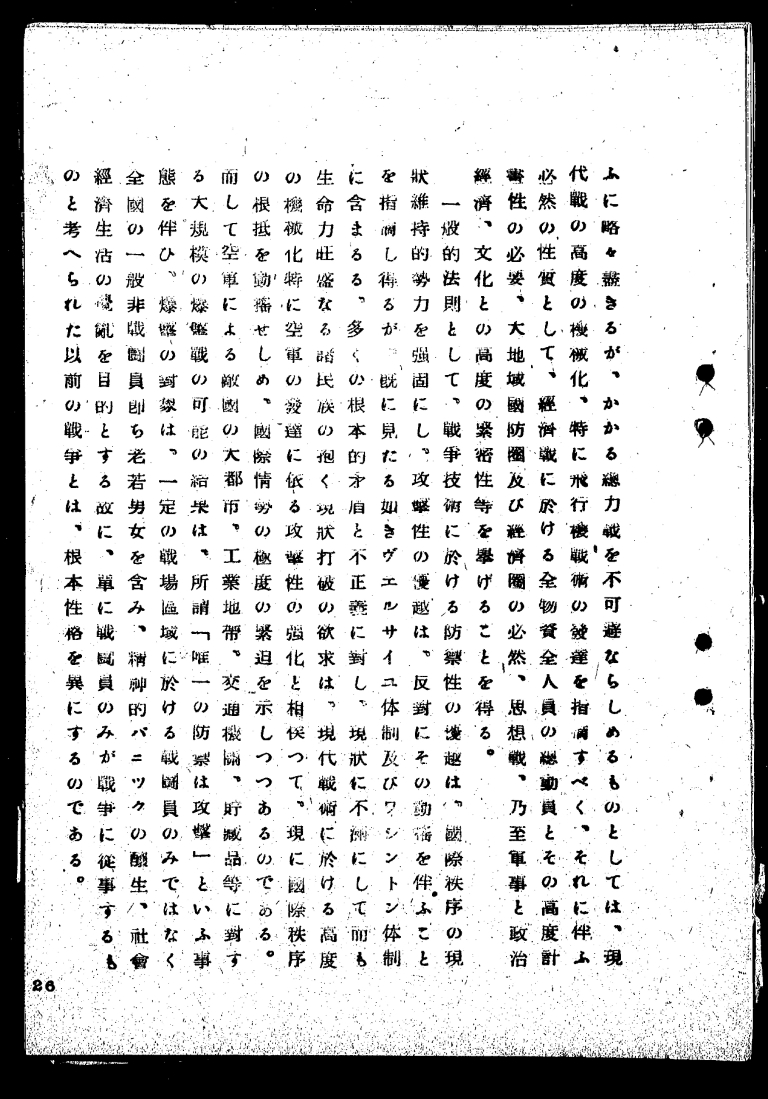 ふに略々盡きるが、かかる總力戰を不可避ならしめるものとしては、現
代戰の高度の機械化、特に飛行機戰術の發達を指摘すべく、それに伴ふ
必然の性質として、經濟戰に於ける全物資全人員の總動員とその高度計
畫性の必要、大地域國防圈及び經濟圈の必然、思想戰、乃至軍事と政治
經濟、文化との高度の緊密性等を擧げることを得る。
一般的法則として、戰爭技術に於ける防禦性の優越は、國際秩序の現
狀維持的勢力を强固にし、攻擊性の優越は、反對にその動搖を伴ふこと
を指摘し得るが、既に見たる如きヴエルサイユ体制及びワシントン体制
に含まるる、多くの根本的矛盾と不正義に對し、現狀に不滿にして而も
生命力旺盛なる諸民族の抱く現狀打破の欲求は、現代戰術に於ける高度
の機械化特に空軍の發達に依る攻擊性の强化と相俟つて、現に國際秩序
の根抵を動搖せしめ、國際情勢の極度の緊迫を示しつつあるのである。
而して空軍による敵國の大都市、工業地帶、交通機關、貯藏品等に對す
る大規模の爆擊戰の可能の結果は、所謂「唯一の防禦は攻擊」といふ事
態を伴ひ、爆擊の對象は、一定の戰場區域に於ける戰鬪員のみではなく
全國の一般非戰鬪員即ち老若男女を含み、精神的パニックの釀生、社會
經濟生活の擾亂を目的とする故に、單に戰鬪員のみが戰爭に從事するも
のと考へられた以前の戰爭とは、根本性格を異にするのである。
26